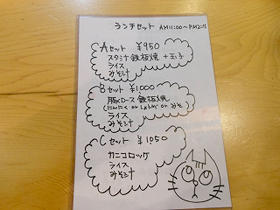 ランチセット AM11:00~PM2:15
Aセット ¥950
スタミナ鉄板焼 +玉子
ライス
みそ汁
Bセット ¥1,000
豚ロース 鉄板焼
(にんにく or しょうが or みそ)
ライス
みそ汁
Cセット ¥1050
カニコロッケ
ライス
みそ汁